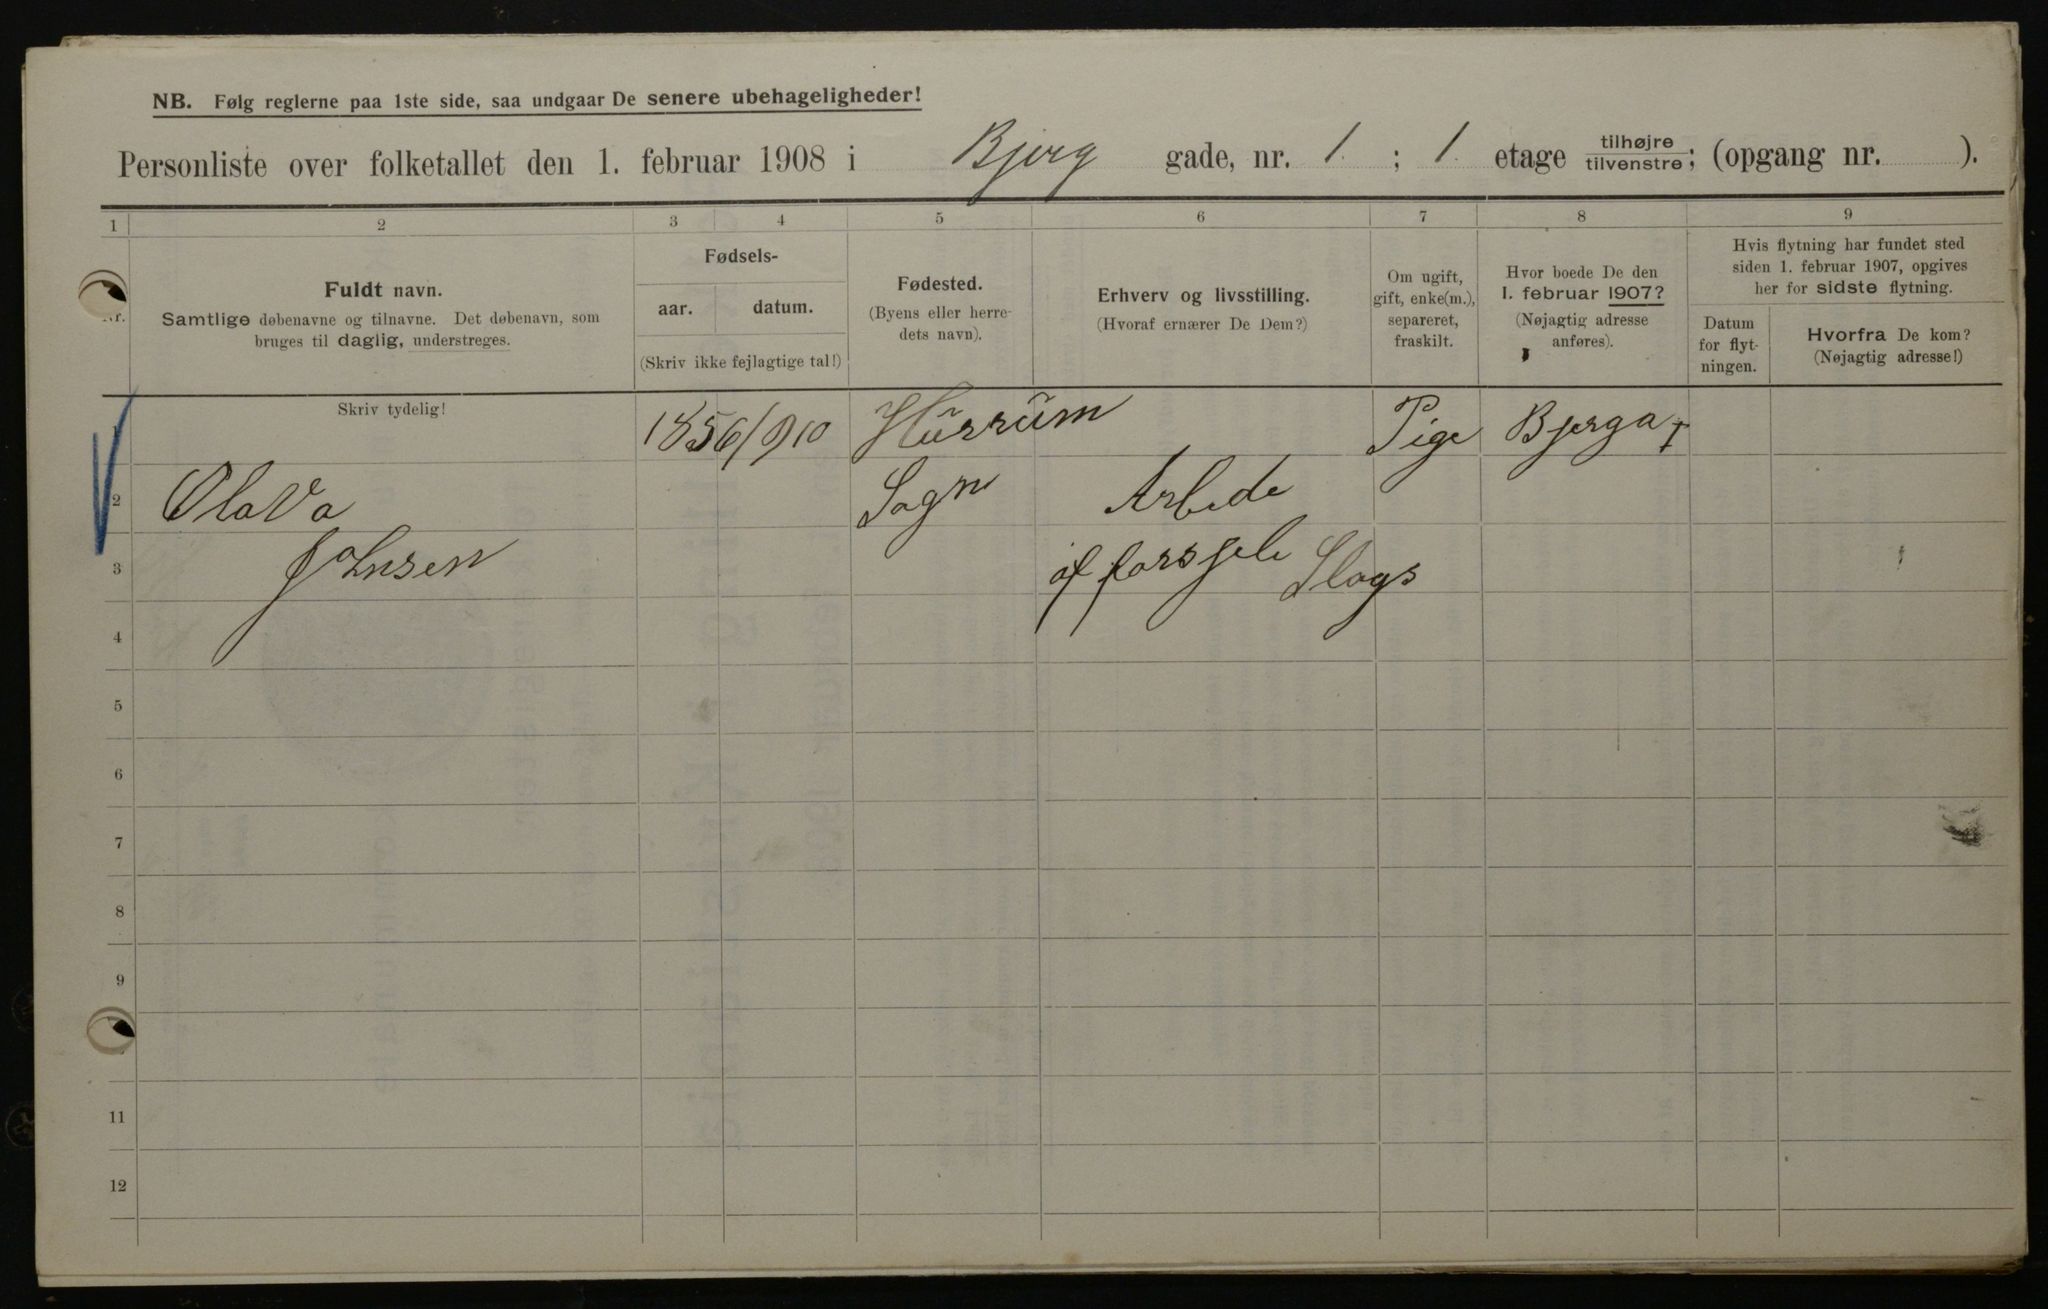 NB. Følg reglerne paa 1ste side, saa undgaar De senere ubehageligheder!
Personliste over folketallet den 1. februar 1908 i Bjerg gade, nr. 1. ; 1. etage tilhøjre tilvenstre; (opgang nr. ).
1 2 3 4 5 6 7 8 9
Nr.
Fuldt navn.
Samtlige døbenavne og tilnavne. Det døbenavn, som
bruges til daglig, understreges.
Fødsels-
aar. datum.
(Skriv ikke fejlagtige tal!)
Fødested.
(Byens eller herre-
dets navn).
Erhverv og livsstilling.
(Hvoraf ernærer De Dem?)
Om ugift,
gift, enke(m.),
separeret,
fraskilt.
Hvor boede De den
1. februar 1907?
(Nøjagtig adresse
anføres).
Hvis flytning har fundet sted
siden 1. februar 1907, opgives
her for sidste flytning.
Datum
for flyt-
ningen.
Hvorfra De kom?
(Nøjagtig adresse!)
Skriv tydelig!
1 1856 / 9/10 Hürrüm Pige Bjerga 1
2 Olava Sogn Arbede
3 Johnsen af forsjele Slags
4
5
6
7
8
9
11
12